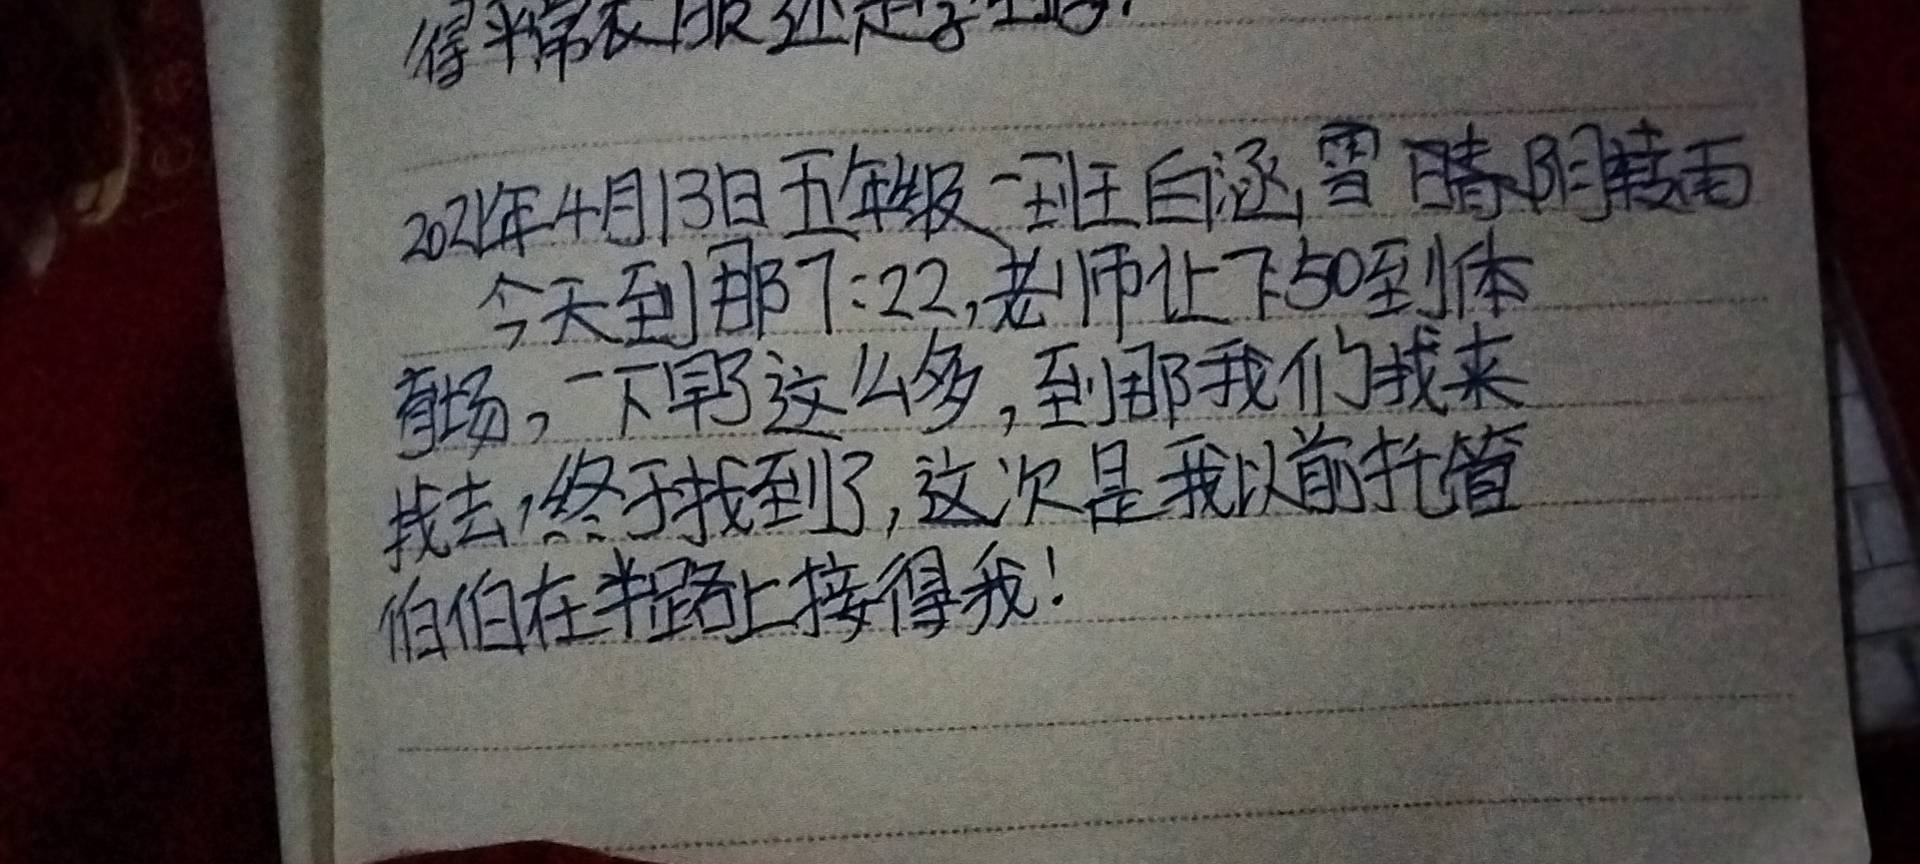 得平常衣服还是
2021年4月13日五年级一班白涵,雪 晴阴转雨
今天到那7:22,老师让7:50到体
育场,一下早了这么多,到那我们找来
找去,终于找到了,这次是我以前托管
伯伯在半路上接得我!